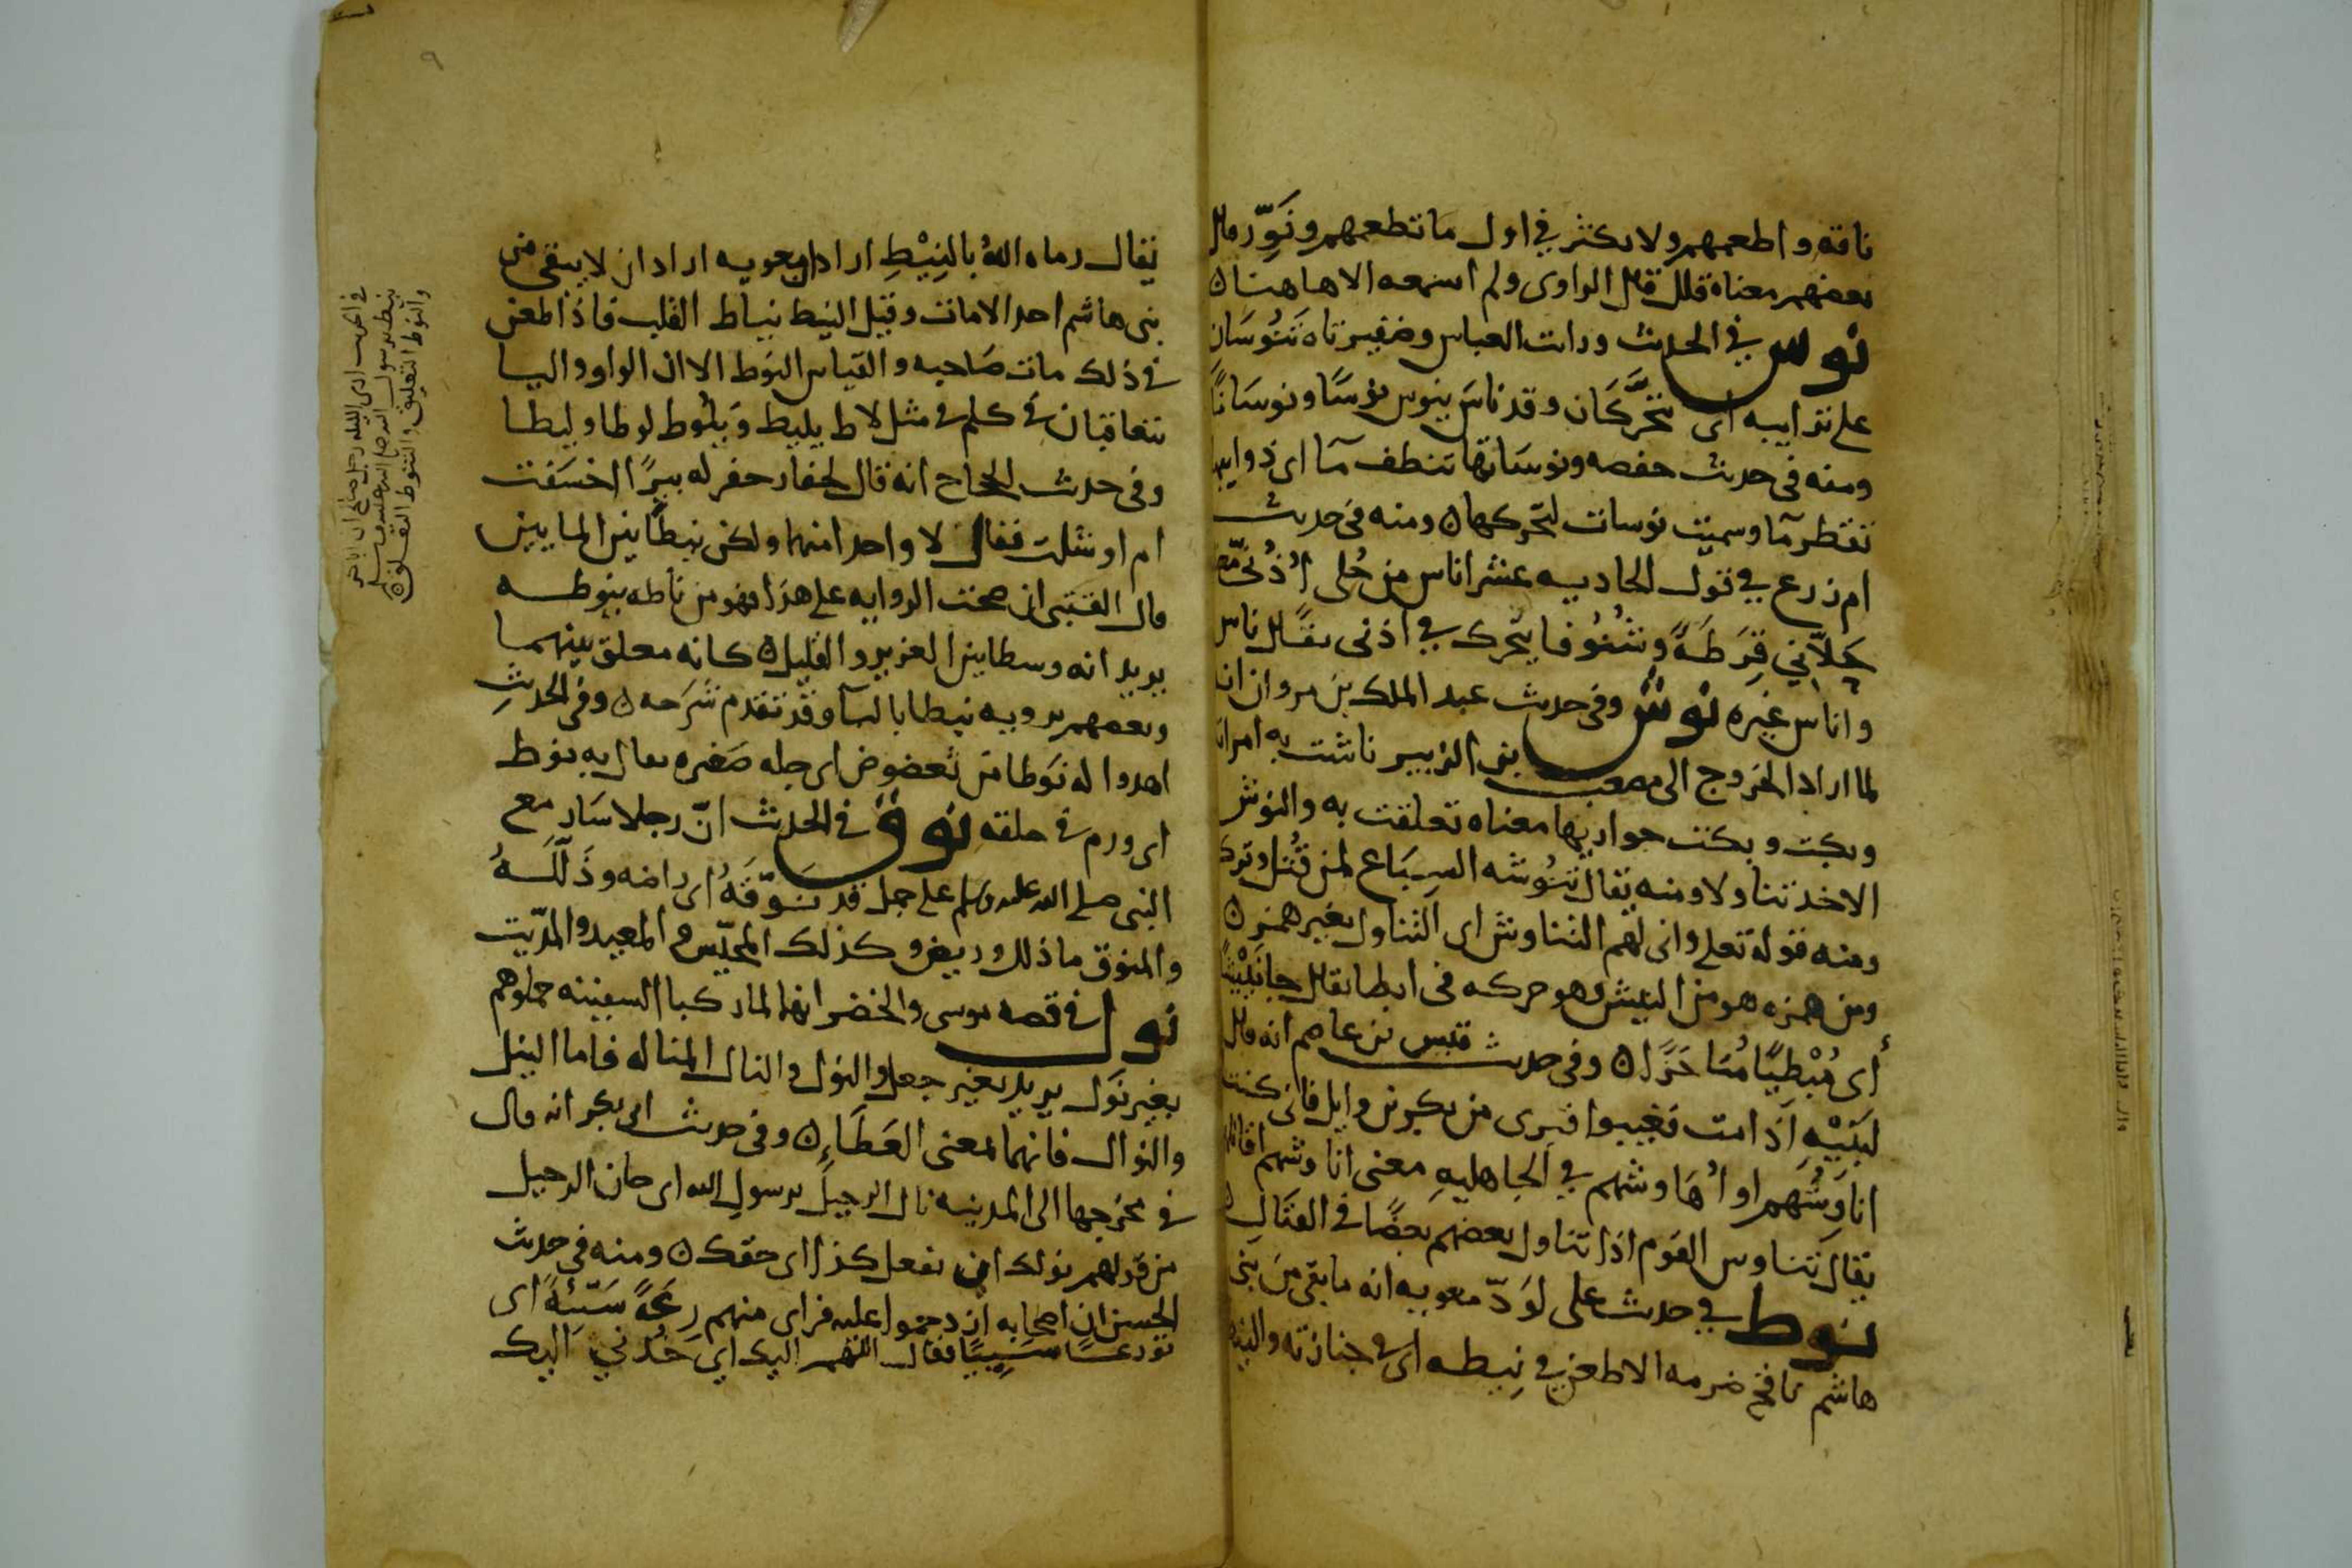 ناقته واطعمهم ولا تكثر في اول ما تطعمهم ونَوِّز قال
بعضهم معناه قلل قال الراوى ولم اسمعه الا هاهنا ه
نوس في الحديث ورات العباس وضفيرتاه تَنُوسَانِ
على ترايبه اى تتحرَّكَان وقد ناسَ ينوس نوسًا ونوسَانًا
ومنه فى حديث حفصه ونوسَاتها تنطف مآ اى ذوايبها
تقطر مآ وسميت نوسات لتحركها ه ومنه فى حديث
ام زرع في قول الحاديه عشر اناس من حُلى اُذُنَىَّ
حَلاَّنِي قِرَطَةً وشُنُوفا يتحرك في اذنى يقال ناس
واناس غيره نوش وفى حديث عبد الملك بن مروان انه
لما اراد الخروج الى مصعب بن الزبير ناشت به امراته
وبكت وبكت جواريها معناه تعلقت به والنوش
الاخذ تناولا ومنه يقال تَنُوشه السِبَاع لمن قُتل وترك
ومنه قوله تعلى وانى لهم التناوش اى التناول بغير همز ه
ومن همزه هو من النئيش وهو حركه فى ابطا يقال جا نَئِيْشًا
أى مُبْطِيًا مُتاخرًا ه وفى حديث قيس بن عاصم انه قال
لبَنِيْهِ اذا مت فغيبوا قبرى من بكر بن وايل فانى كنت
اناوِشُهم او اُهَاوشهم في الجاهليهِ معنى اناوشهم اقاتلهم
يقال تناوش القوم اذا تناول بعضهم بعضًا فى القتَالِ ه
نوط في حديث على لوَدّ معويه انه ما بقى من بنى
هاشم نافخ ضرمه الا طعن في نِيطه اى فى جنازته
يقال رماه اللهُ بالنِيْطِ اراد ان معويه اراد ان لا يبقى من
بنى هاشم احد الا مات وقيل النيط نياط القلب فاذا طعن
فى ذلك مات صَاحبه والقياس النوط الا ان الواو واليا
تتعاقبان فى كلم فى مثل لاط يليط وَيَلُوط لوطا وليطا
وفى حديث الحجاج انه قال لحفار حفر له بيرًا اخسَفت
ام اوشلت فقال لا واحد امنهما ولكن نيطًا بين الما يين
قال القتبى ان صحت الروايه على هذا فهو من ناطه ينوطه
يريد انه وسطا بين الغزير والقليل ه كانه معلق بينهما
وبعضهم يرويه نبطا بالبا وقد تقدم شرحه ه وفى الحديث
اهدوا له نَوطا من تعضوض اى جله صغيره يقال به نوط
اى ورم فى حلقه نوق فى الحديث انّ رجلا سَار مع
النبى صلى الله عليه وسلم على جمل قد نوَّقَهُ اى راضه وذَلَّلَهُ
والمنوق ما ذلل وريض وكذلك المخيّس والمعبد والمديّث
نول فى قصه موسى والخضر انهما لما ركبا السفينه حملوهم
بغير نَول يريد بغير جعل والنول والنال المناله فاما النيل
والنوال فانهما لمعنى العَطَاءِ ه وفى حديث ابى بكر انه قال
فى مخرجها الى المدينه نال الرحيلُ يرسول الله اى حان الرحيل
من قولهم نولك ان تفعل كذا اى حقك ه ومنه فى حديث
الحسن ان اصحابه ازدحموا عليه فراى منهم رِعَةً سَيِّئةً اى
تورعًا سَيِّيًا فقال اللهم اليك اى خُذنى اليك
فى الحديث ارى الليله رجل صالح ان ابا بكر
نيط برسول الله صلى الله عليه وسلم
والنوط التعليق والتنوط التعلق ه
٩